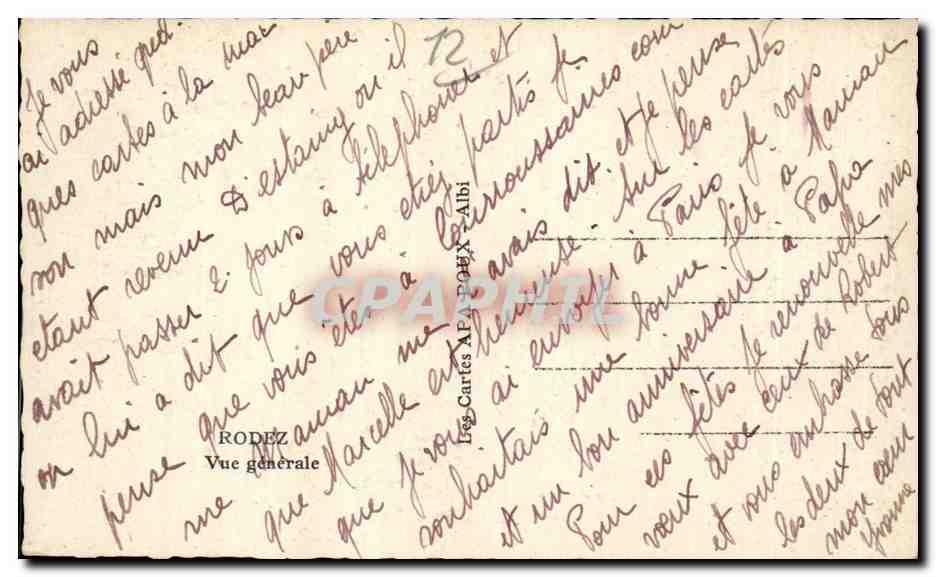 Je vous
ai adressé quel
ques cartes à la mai
son mais mon beau père
étant revenu D'estaing ou il
avait passer 2 jours à téléphoner et
on lui a dit que vous étiez partis je
pense que vous êtes à Courroussaines com
me Maman me avais dit. et je pense
que Marcelle est heureuse. Sur les cartes
que je vous ai envoyer à Paris Je vous
souhaitais une bonne fête a Maman
et un bon anniversaire a Papa
Pour ces fêtes Je renouvelle mes
vœux avec ceux de Robert
et vous embrasse tous
les deux de tout
mon cœur
Yvonne
12
RODEZ
Vue générale
Les Cartes APA-POUX - Albi
CPAPHIL